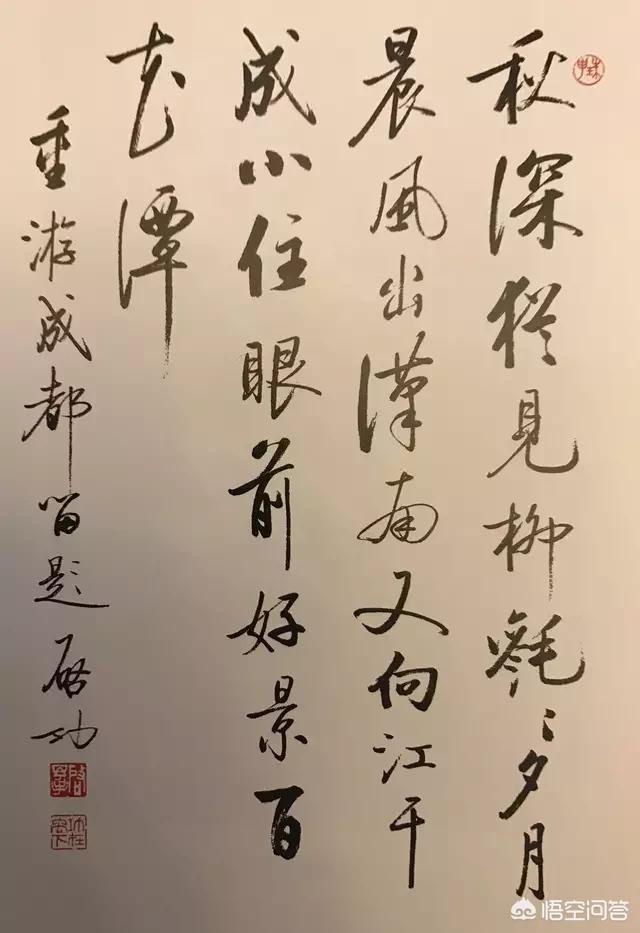 秋深猶見柳毿〻夕月
晨風出漢南又向江干
成小住眼前好景百
花潭
重游成都留題 啓功
悟空问答